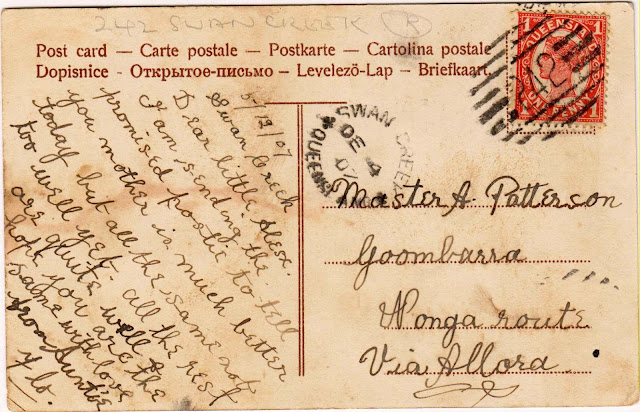 242 SWAN CREEK R
Post card — Carte postale — Postkarte — Cartolina postale
Dopisnice - Открытое-письмо — Levelező-Lap — Briefkaart.
QUEENSLAND
1 1
ONE PENNY
SWAN CREEK
DE 4
07
QUEENS
5/12/07
Swan Creek
Dear little Alex.
I am sending the
promised postie to tell
you mother is much better
today but all the same not
too well yet. all the rest
are quite well &
hope you are the
same with love
from Auntie
Master A Patterson
Goombarra
Nonga route
Via Allora.